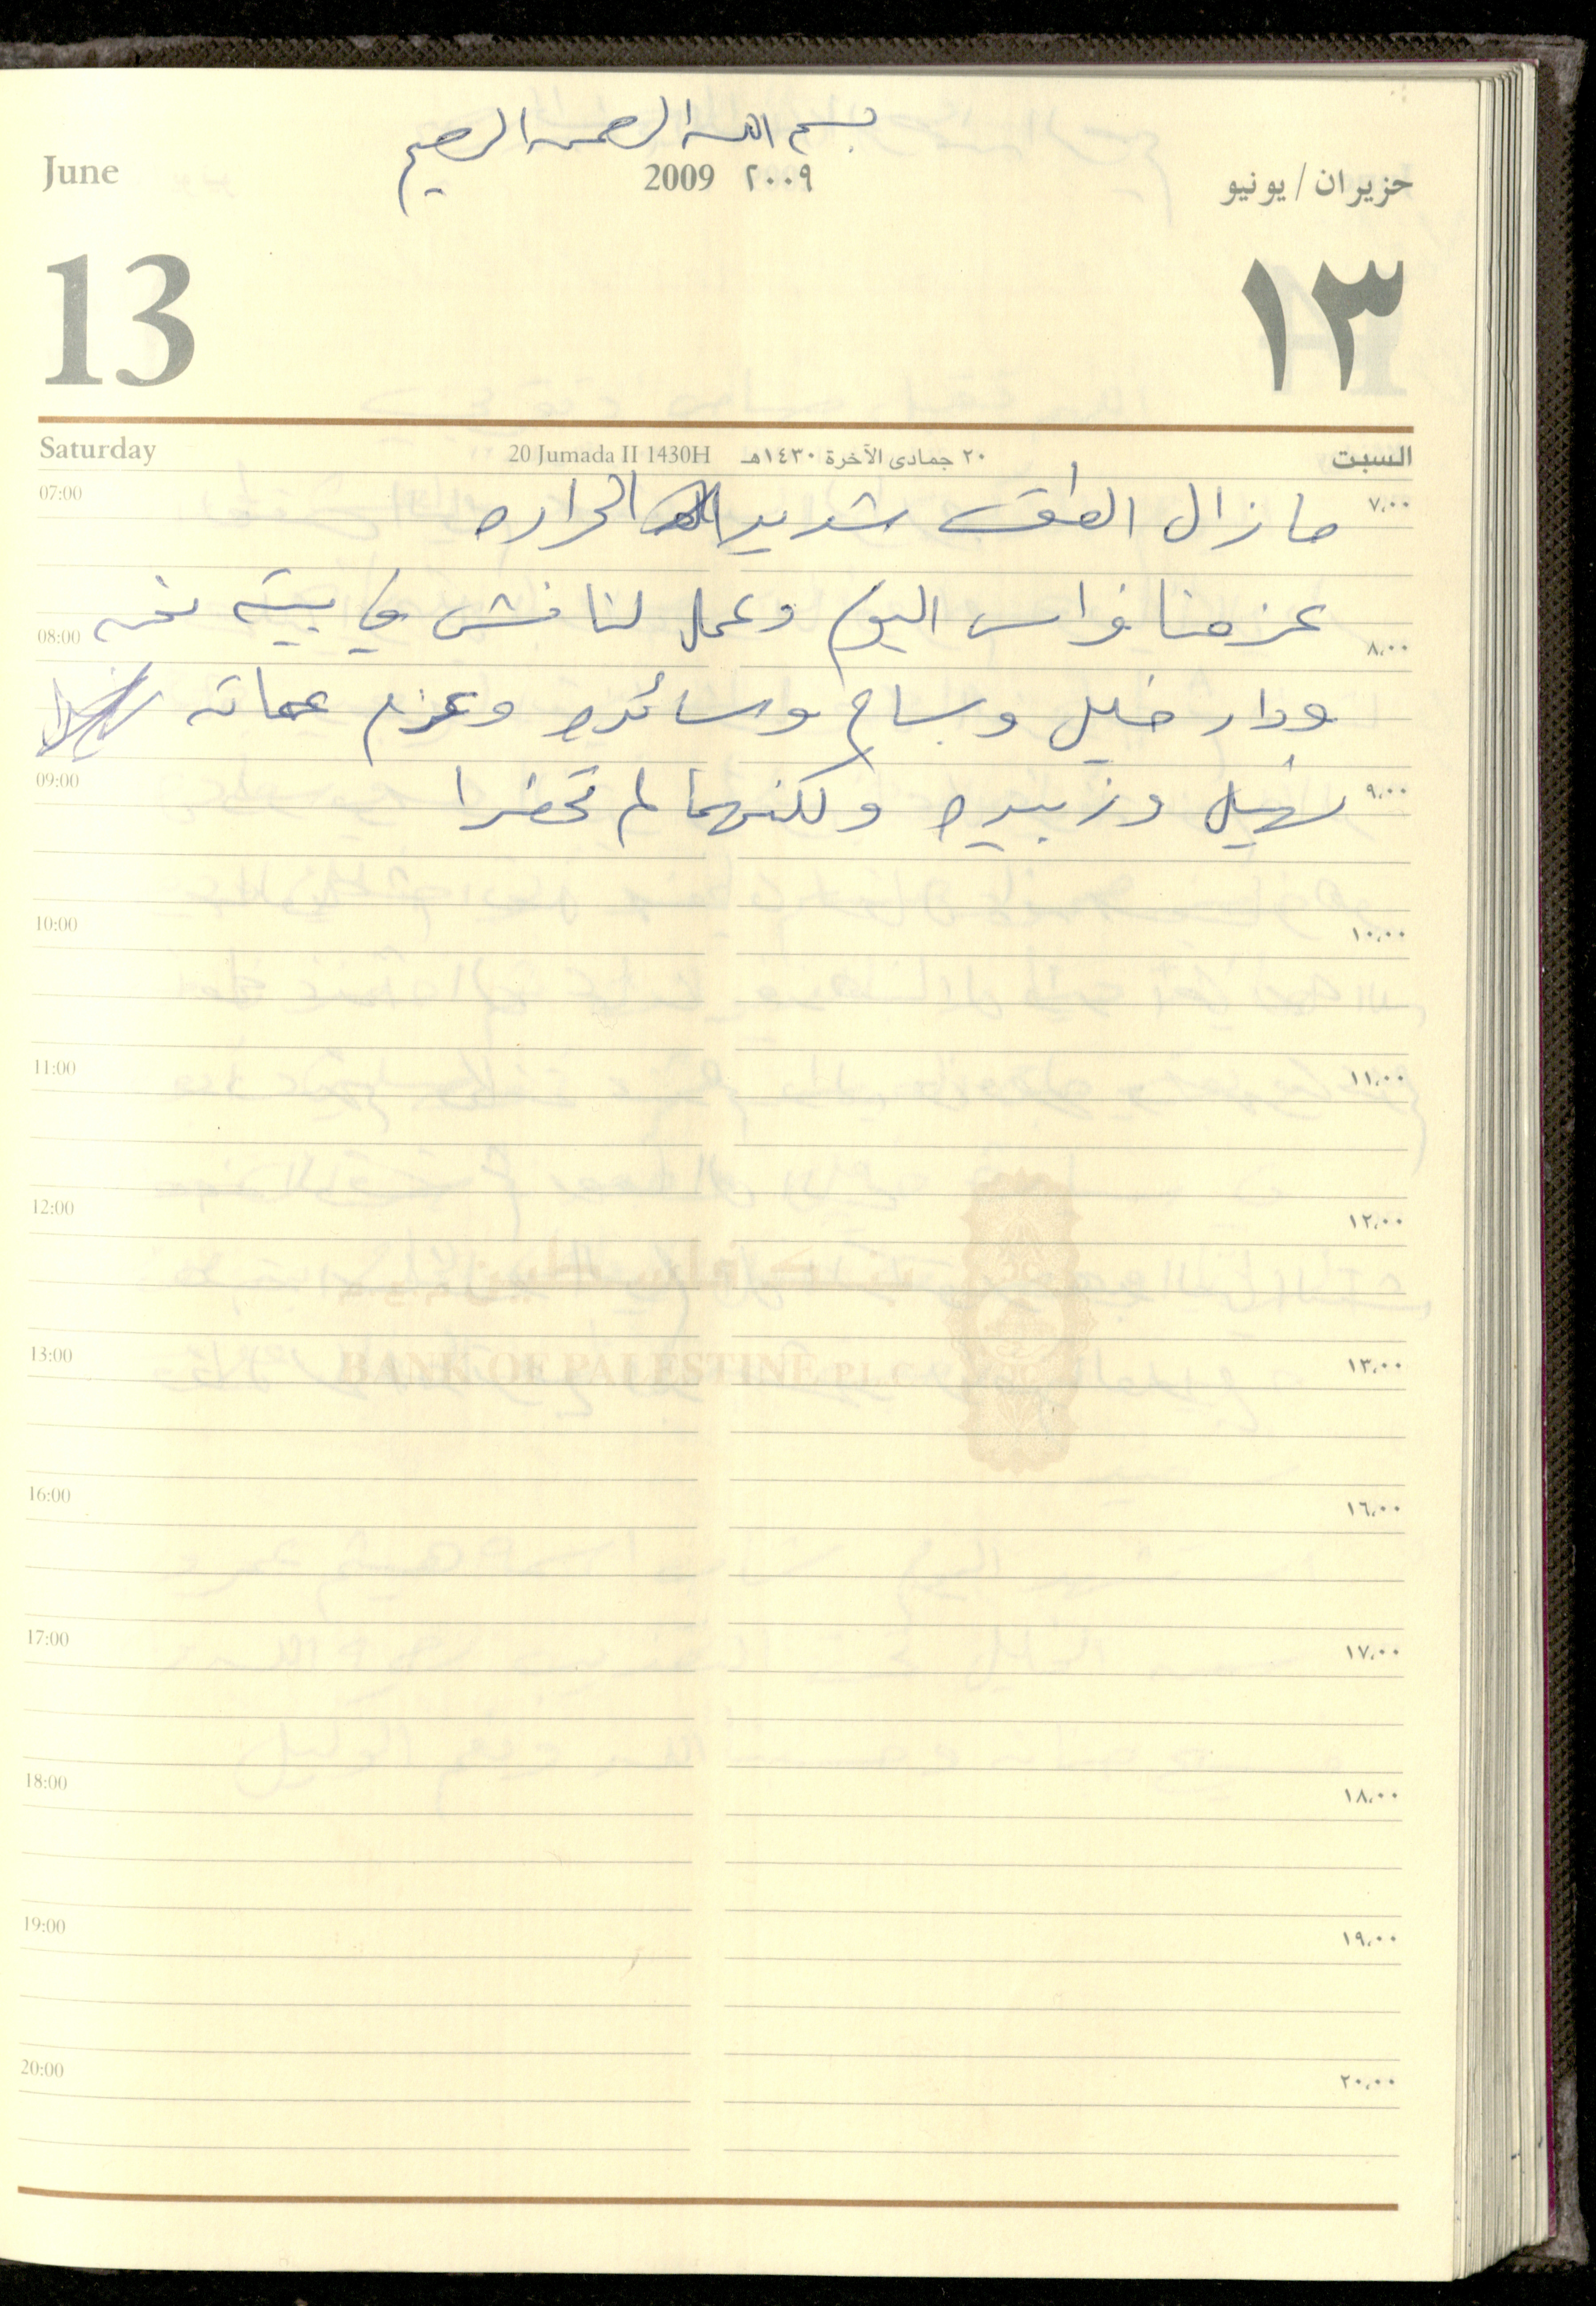 بسم الله الرحمن الرحيم
June 2009 ٢٠٠٩ حزيران / يونيو
13 ١٣
Saturday 20 Jumada II 1430H ٢٠ جمادى الآخرة ١٤٣٠هـ السبت
07:00 ٧,٠٠
ما زال الطقس شديد الحراره
عزمنا فراس اليوم وعمل لنا مشي في بيته نحن
08:00 ٨,٠٠
ودار خليل وبسام وسائده وعزم عماته
09:00 ٩,٠٠
نهيل وزبيده ولكنهما لم تحضرا
10:00 ١٠,٠٠
11:00 ١١,٠٠
12:00 ١٢,٠٠
BANK OF PALESTINE P.L.C
13:00 ١٣,٠٠
16:00 ١٦,٠٠
17:00 ١٧,٠٠
18:00 ١٨,٠٠
19:00 ١٩,٠٠
20:00 ٢٠,٠٠